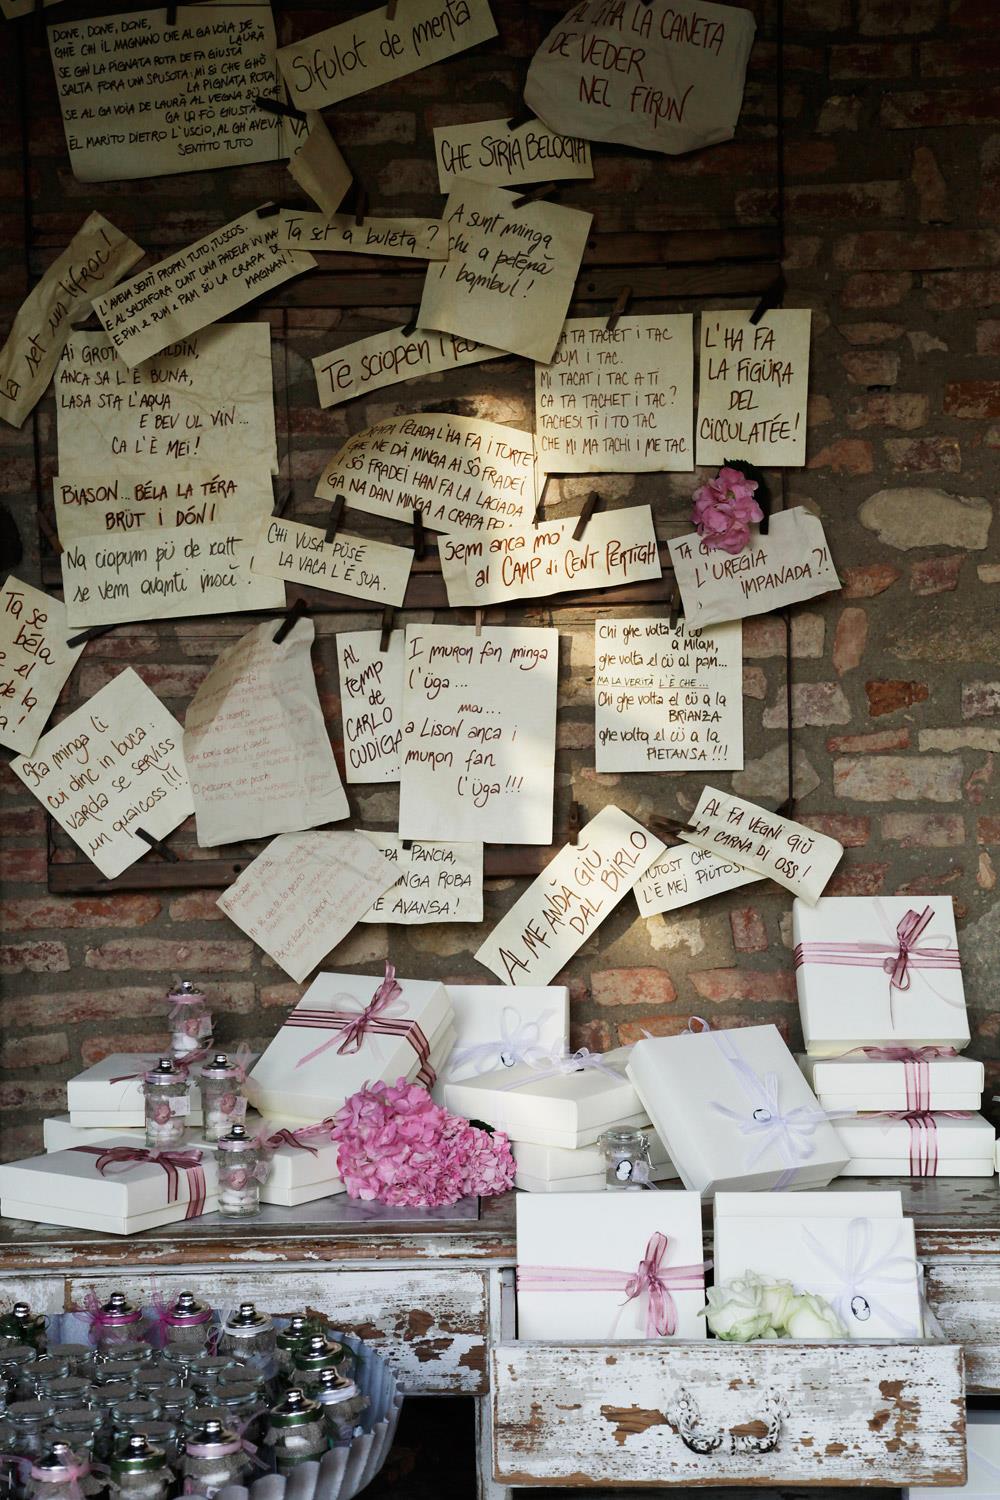 DONE, DONE, DONE,
GHÈ CHI IL MAGNANO CHE AL GA VOIA DE
LAURÀ
SE GHI LA PIGNATA ROTA DE FA GIUSTÀ
SALTA FORA UN SPUSOTA: MI SI CHE GHÒ
LA PIGNATA ROTA,
SE AL GA VOIA DE LAURÀ AL VEGNA SÜ CHE
GA LA FÒ GIUSTÀ
ÈL MARITO DIETRO L'USCIO, AL GH'AVEVA
SENTITO TUTO
Sifulot de menta
AL GHA LA CANETA
DE VEDER
NEL FIRUN
VA
CHE STRIA BELOGIA
A sunt minga
chi a petenà
i bambul!
Ta set a bulèta?
set un lifroc!
L'AVEVA SENTÌ PROPRI TUTO, TUSCOS.
E AL SALTAFORA CUNT UNA PADELA IN MA
E PIM E PUM E PAM SÜ LA CRAPA DE
MAGNAN!
Te sciopen i
AI GROT
ANCA SA L'È BUNA,
LASA STA L'AQUA
E BEV UL VIN...
CA L'È MEI!
TA TACHET I TAC
CUM I TAC.
MI TACAT I TAC A TI
CA TA TACHET I TAC?
TACHESI TI I TO TAC
CHE MI MA TACHI I ME TAC.
L'HA FA
LA FIGÜRA
DEL
CICCULATÉE!
CRAPA PELADA L'HA FA I TURTEI
CHE NE DÀ MINGA AI SÔ FRADEI
I SÔ FRADEI HAN FA LA LACIADA
GA NA DAN MINGA A CRAPA PE
BIASON... BÉLA LA TÉRA
BRÜT I DÓN!
Na ciapum pü de ratt
se vem avanti inscì!
CHI VUSA PÜSÉ
LA VACA L'È SUA.
Sem anca mo'
al CAMP di CENT PERTIGH
TA
L'UREGIA
IMPANADA?!
Ta se
béla
e el
de la
a!
AL
temp
de
CARLO
CUDIGA
...
I muron fan minga
l'üga...
ma...
a Lison anca i
muron fan
l'üga!!!
Chi ghe volta el cü
a Milan,
ghe volta el cü al pam...
MA LA VERITÀ L'È CHE...
Chi ghe volta el cü a la
BRIANZA
ghe volta el cü a la
PIETANSA!!!
Sta minga lì
cui dinc in buca:
varda se serviss
un quaicoss!!!
PANCIA,
MINGA ROBA
AVANSA!
AL ME ANDÀ GIÙ
DAL BIRLO
PIUTOST CHE
L'È MEJ PIÜTOST
AL FA VEGNÌ GIÙ
LA CARNA DI OSS!